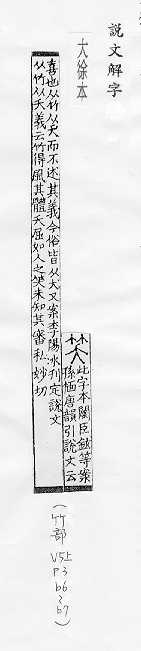 說文解字
大徐本
笑此字本闕臣鉉等案
孫愐唐韻引說文云
喜也从竹从犬而不述其義今俗皆从犬又案李陽冰刊定說文
从竹从夭義云竹得風其體夭屈如人之笑未知其審私妙切
(竹部
V5上
P3
b6
b7)